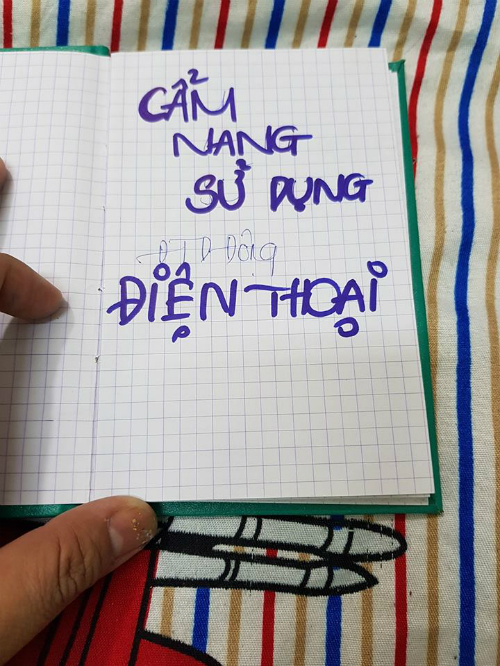 CẨM
NANG
SỬ DỤNG
Động
ĐIỆN THOẠI